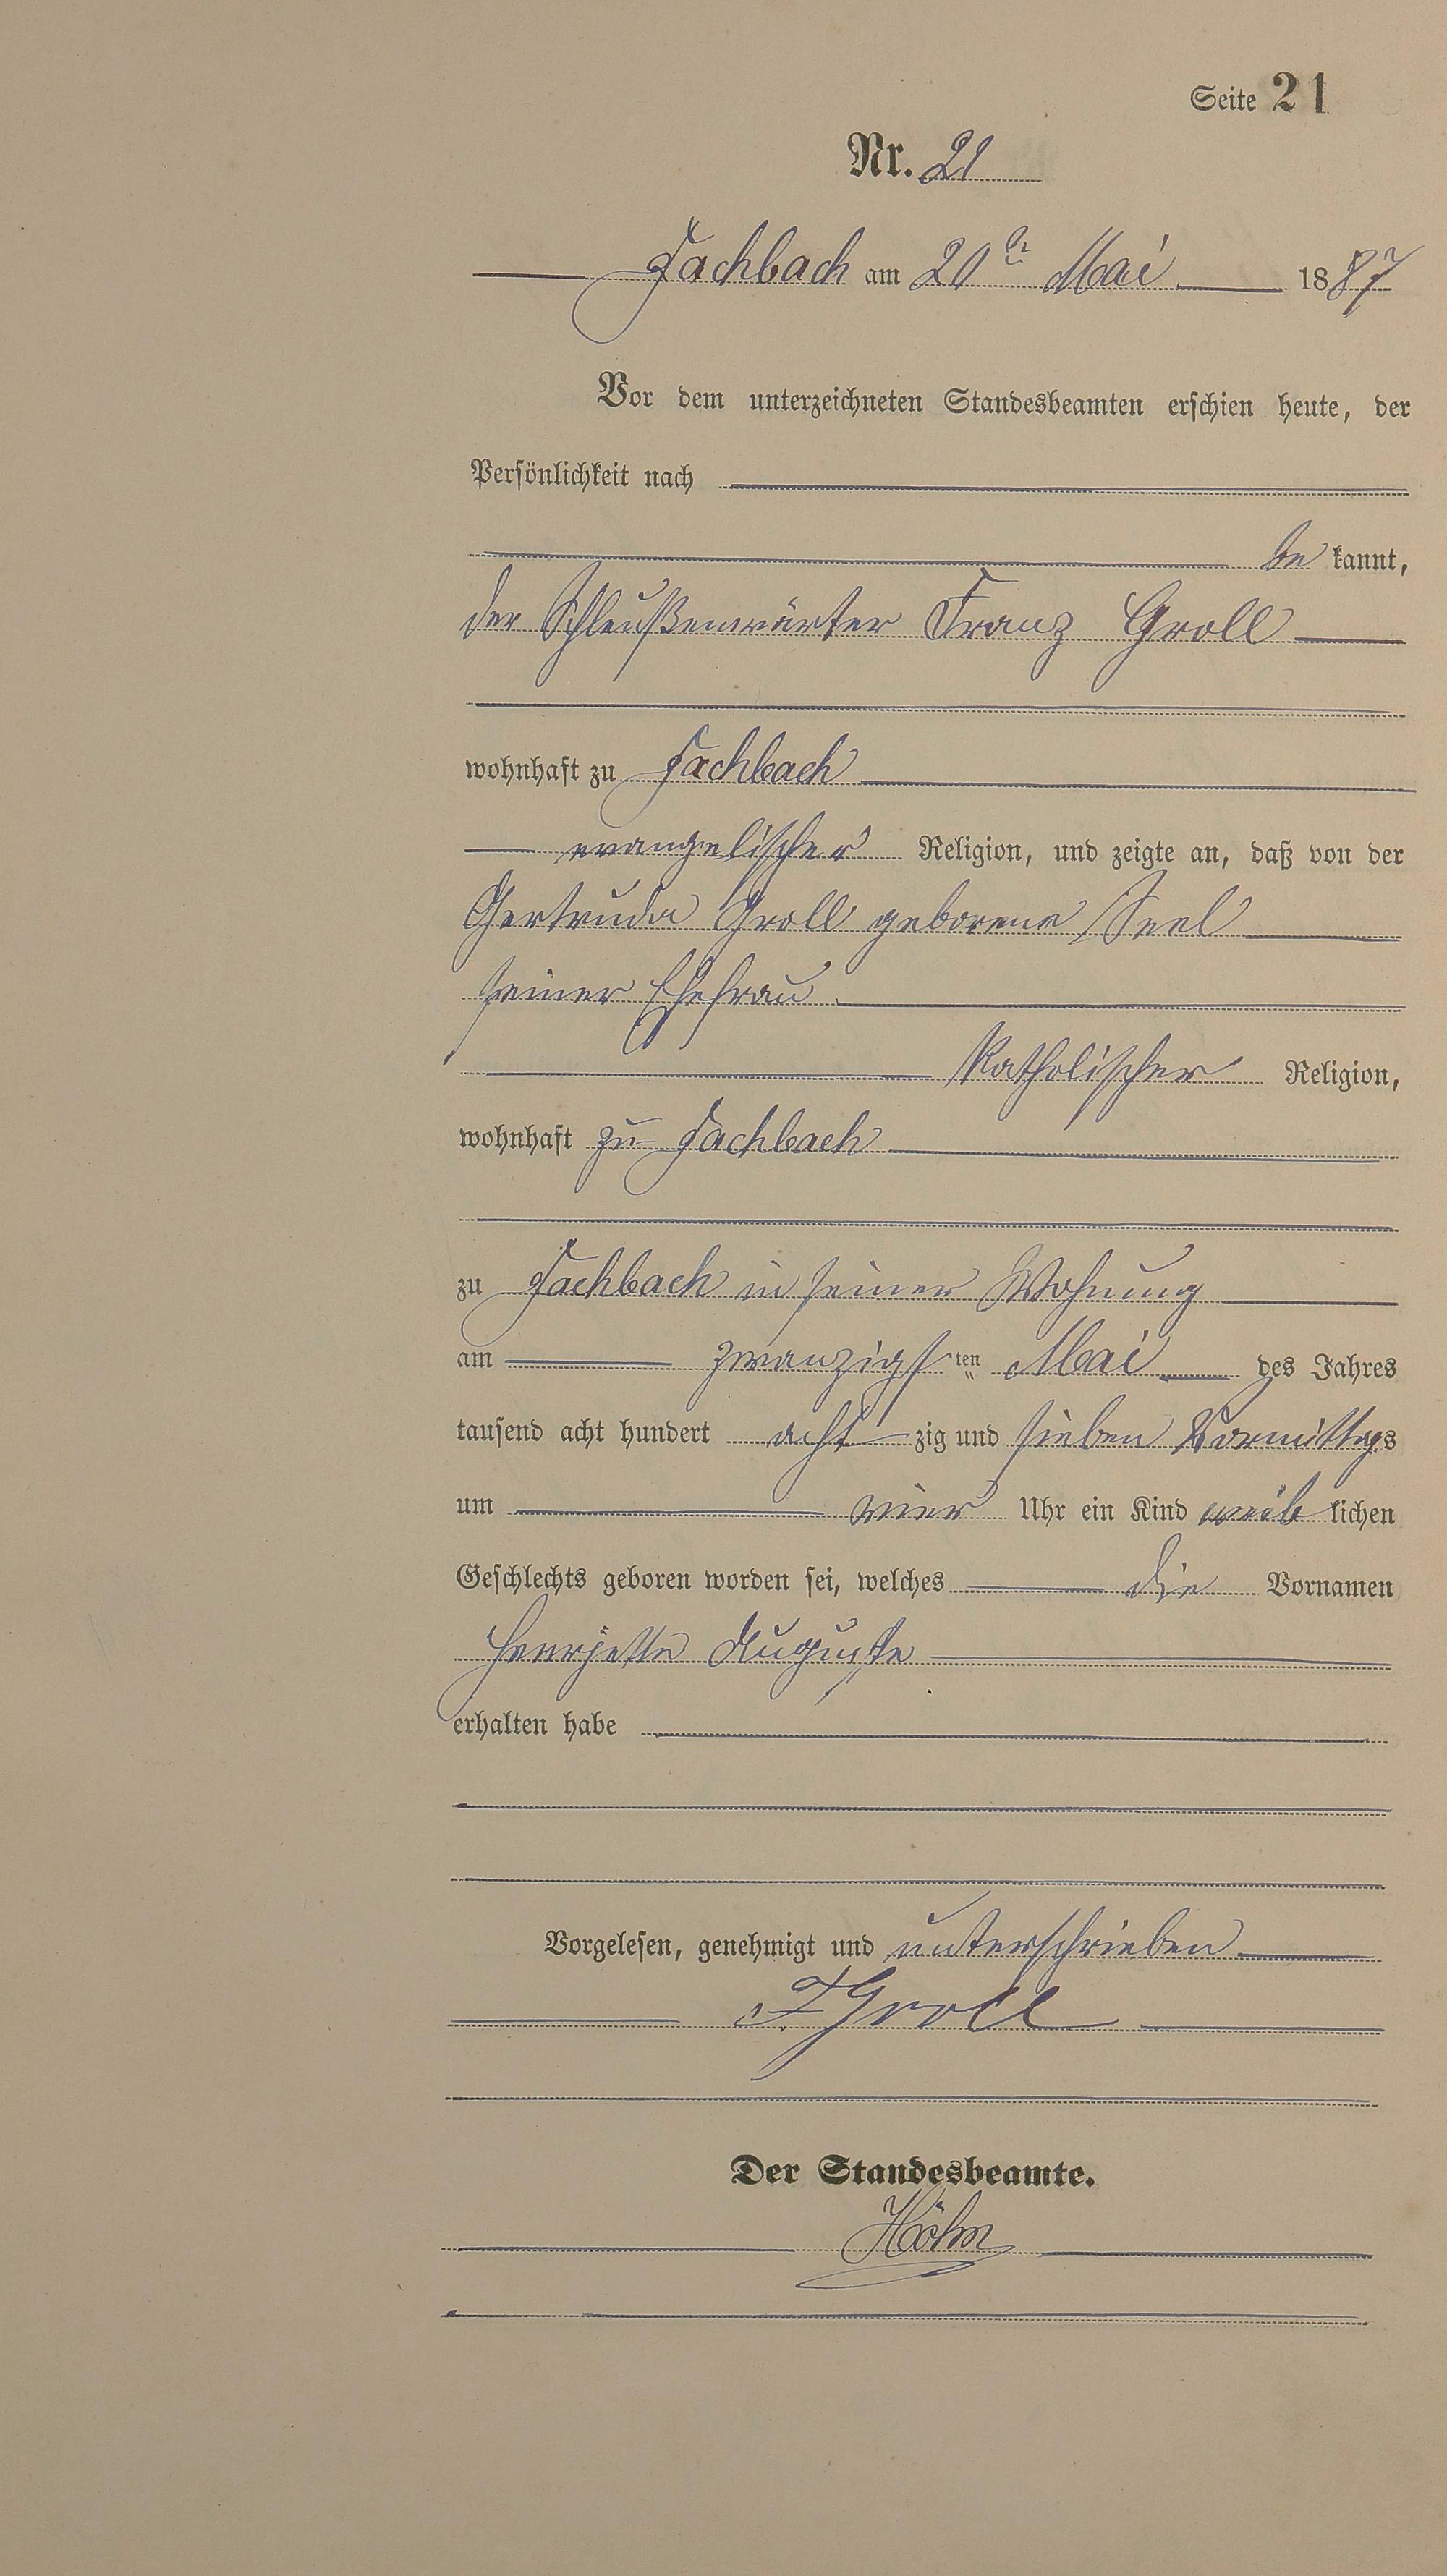 Seite 21
Nr. 21
Fachbach am 20ten Mai 1887
Vor dem unterzeichneten Standesbeamten erschien heute, der
Persönlichkeit nach
be kannt,
der Schleußenwärter Franz Groll
wohnhaft zu Fachbach
evangelischer Religion, und zeigte an, daß von der
Gertruda Groll geborene Seel
seiner Ehefrau
katholischer Religion,
wohnhaft zu Fachbach
zu Fachbach in seiner Wohnung
am zwanzigsten Mai des Jahres
tausend acht hundert acht zig und sieben Vormittags
um vier Uhr ein Kind weib lichen
Geschlechts geboren worden sei, welches die Vornamen
Henrjette Auguste
erhalten habe
Vorgelesen, genehmigt und unterschrieben
F Groll
Der Standesbeamte.